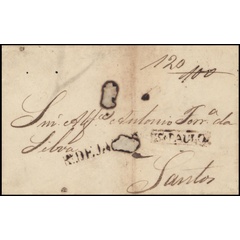 120
100
Snr Alfes Antonio Ferra da
Silva
S.PAULO
R.DE JA
Santos